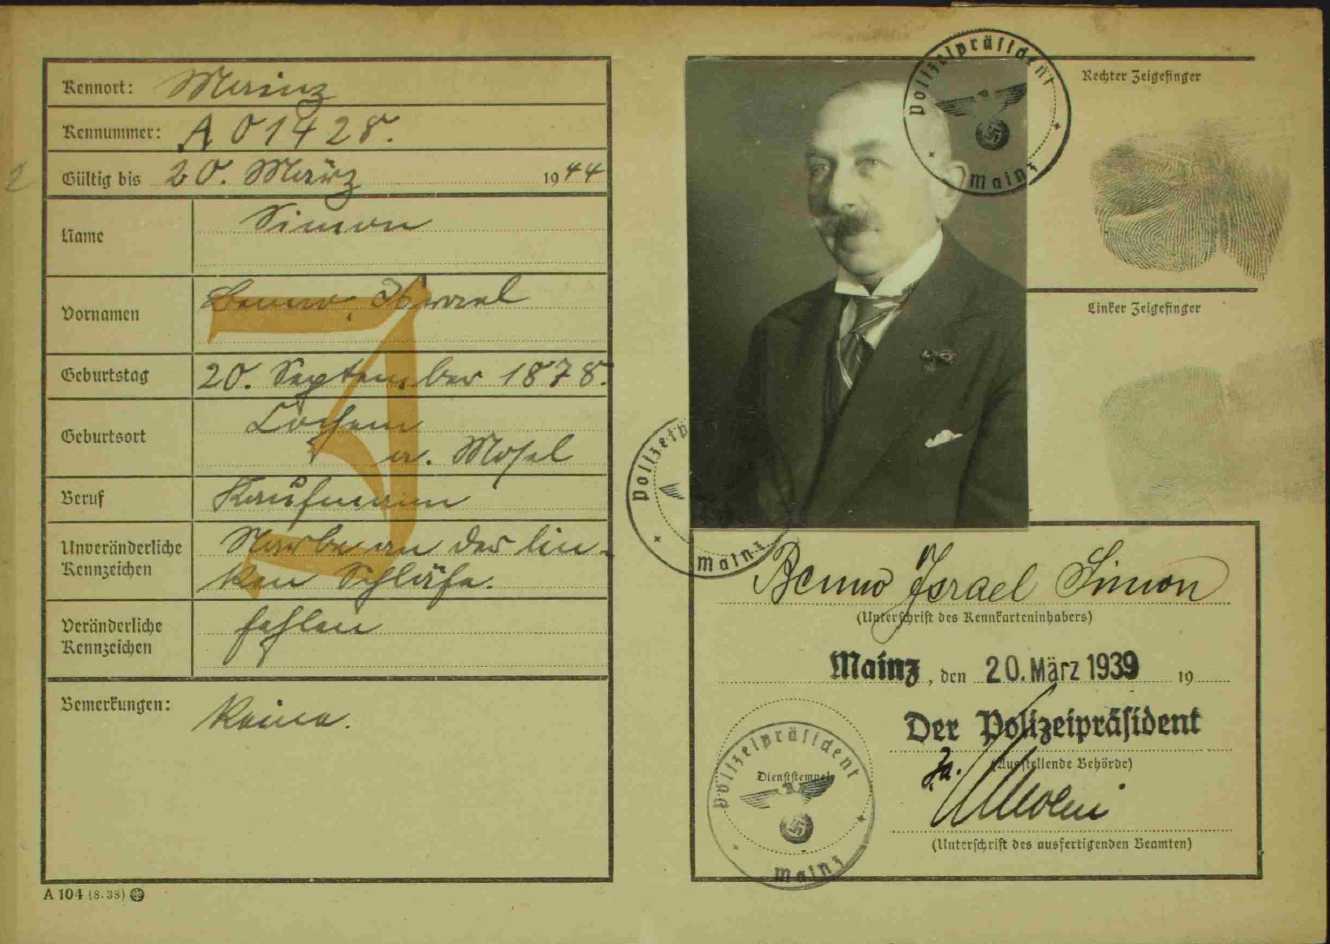 Kennort: Mainz
Kennummer: A 01428.
Gültig bis 20. März 1944
Name Simon
Vornamen Benno, Israel
J
Geburtstag 20. September 1878.
Geburtsort Cochem
a. Mosel
Beruf Kaufmann
Unveränderliche Kennzeichen Narbe an der lin-
ken Schläfe.
Veränderliche Kennzeichen fehlen
Bemerkungen: Keine.
A 104 (8. 38)
Polizeipräsident
Mainz
Rechter Zeigefinger
Linker Zeigefinger
Polizeip
Mainz
Benno Israel Simon
(Unterschrift des Kennkarteninhabers)
Mainz, den 20. März 1939 19
Der Polizeipräsident
(Ausstellende Behörde)
Polizeipräsident
Dienststempel
Mainz
(Unterschrift des ausfertigenden Beamten)